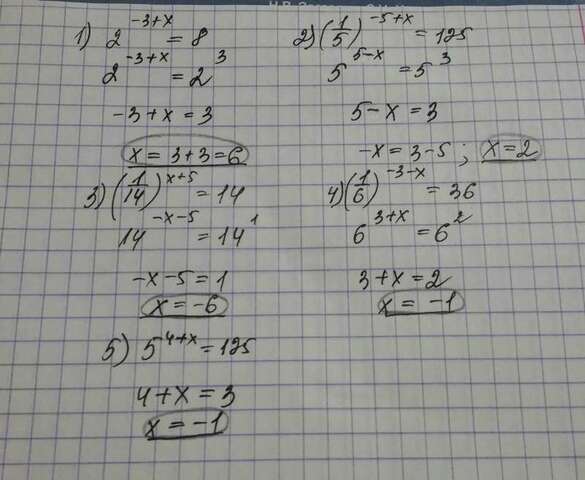 1) 2^(-3+x) = 8
2^(-3+x) = 2^3
-3+x = 3
x = 3+3=6
2) (1/5)^(-5+x) = 125
5^(5-x) = 5^3
5-x = 3
-x = 3-5 ; x=2
3) (1/14)^(x+5) = 14
14^(-x-5) = 14^1
-x-5=1
x = -6
4) (1/6)^(-3-x) = 36
6^(3+x) = 6^2
3+x=2
x = -1
5) 5^(4+x) = 125
4+x=3
x = -1